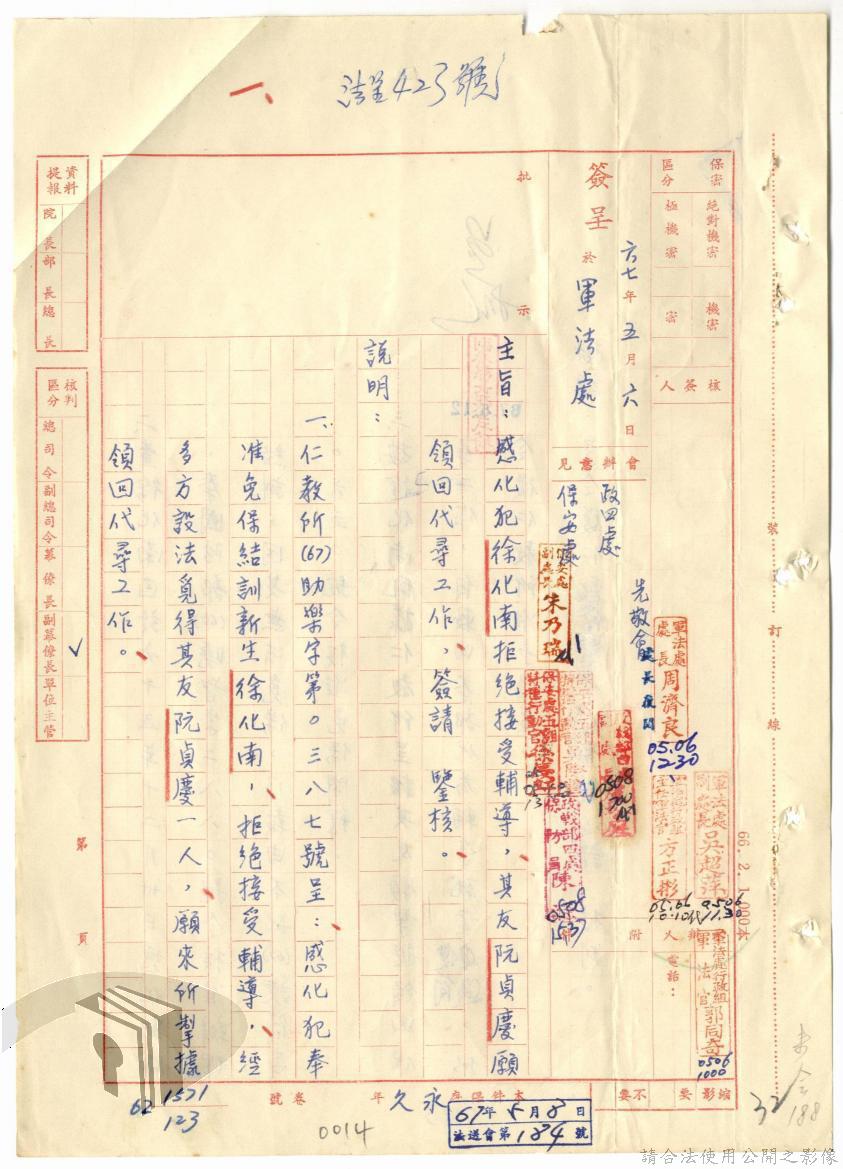 法呈423號
一、
保密區分
絕對機密
極機密
機密
密
核簽人
簽呈
於
軍法處
六七年五月六日
會辦意見
政四處
保安處
先敬會
軍法處處長周濟良
05.06
1230
保安處副處長朱乃瑞
0508
1700
0508
1537
軍法處副處長吳超萍
0506
11.30
方正彬
05.06
10.10
軍法處行政組軍法官郭同奇
0506
1000
附件
電話：
批示
主旨：感化犯徐化南拒絕接受輔導，其友阮貞慶願
領回代尋工作，簽請　鑒核。
說明：
一、仁教所(67)助樂字第０三八七號呈：感化犯奉
准免保結訓新生徐化南，拒絕接受輔導，經
多方設法覓得其友阮貞慶一人，願來所掣據
領回代尋工作。
資料提報
院長
部長
總長
核判區分
總司令
副總司令
幕僚長
副幕僚長
單位主管
✓
第　頁
66.2.1.000本
裝訂線
縮影　要　不要
本件保存永久年
卷號
1571
62
123
67年5月8日
法送會第184號
0014
32
188
請合法使用公開之影像